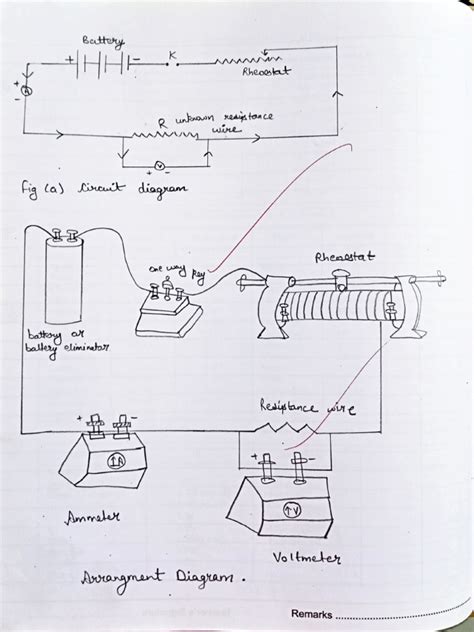 Battery
+ -
K
Rheostat
+
A
-
R unknown resistance
wire
+ V -
Fig (a) Circuit diagram
one way key
Rheostat
battery or
battery eliminator
Resistance wire
+ -
A
+ -
V
Ammeter
Voltmeter
Arrangment Diagram.
Remarks